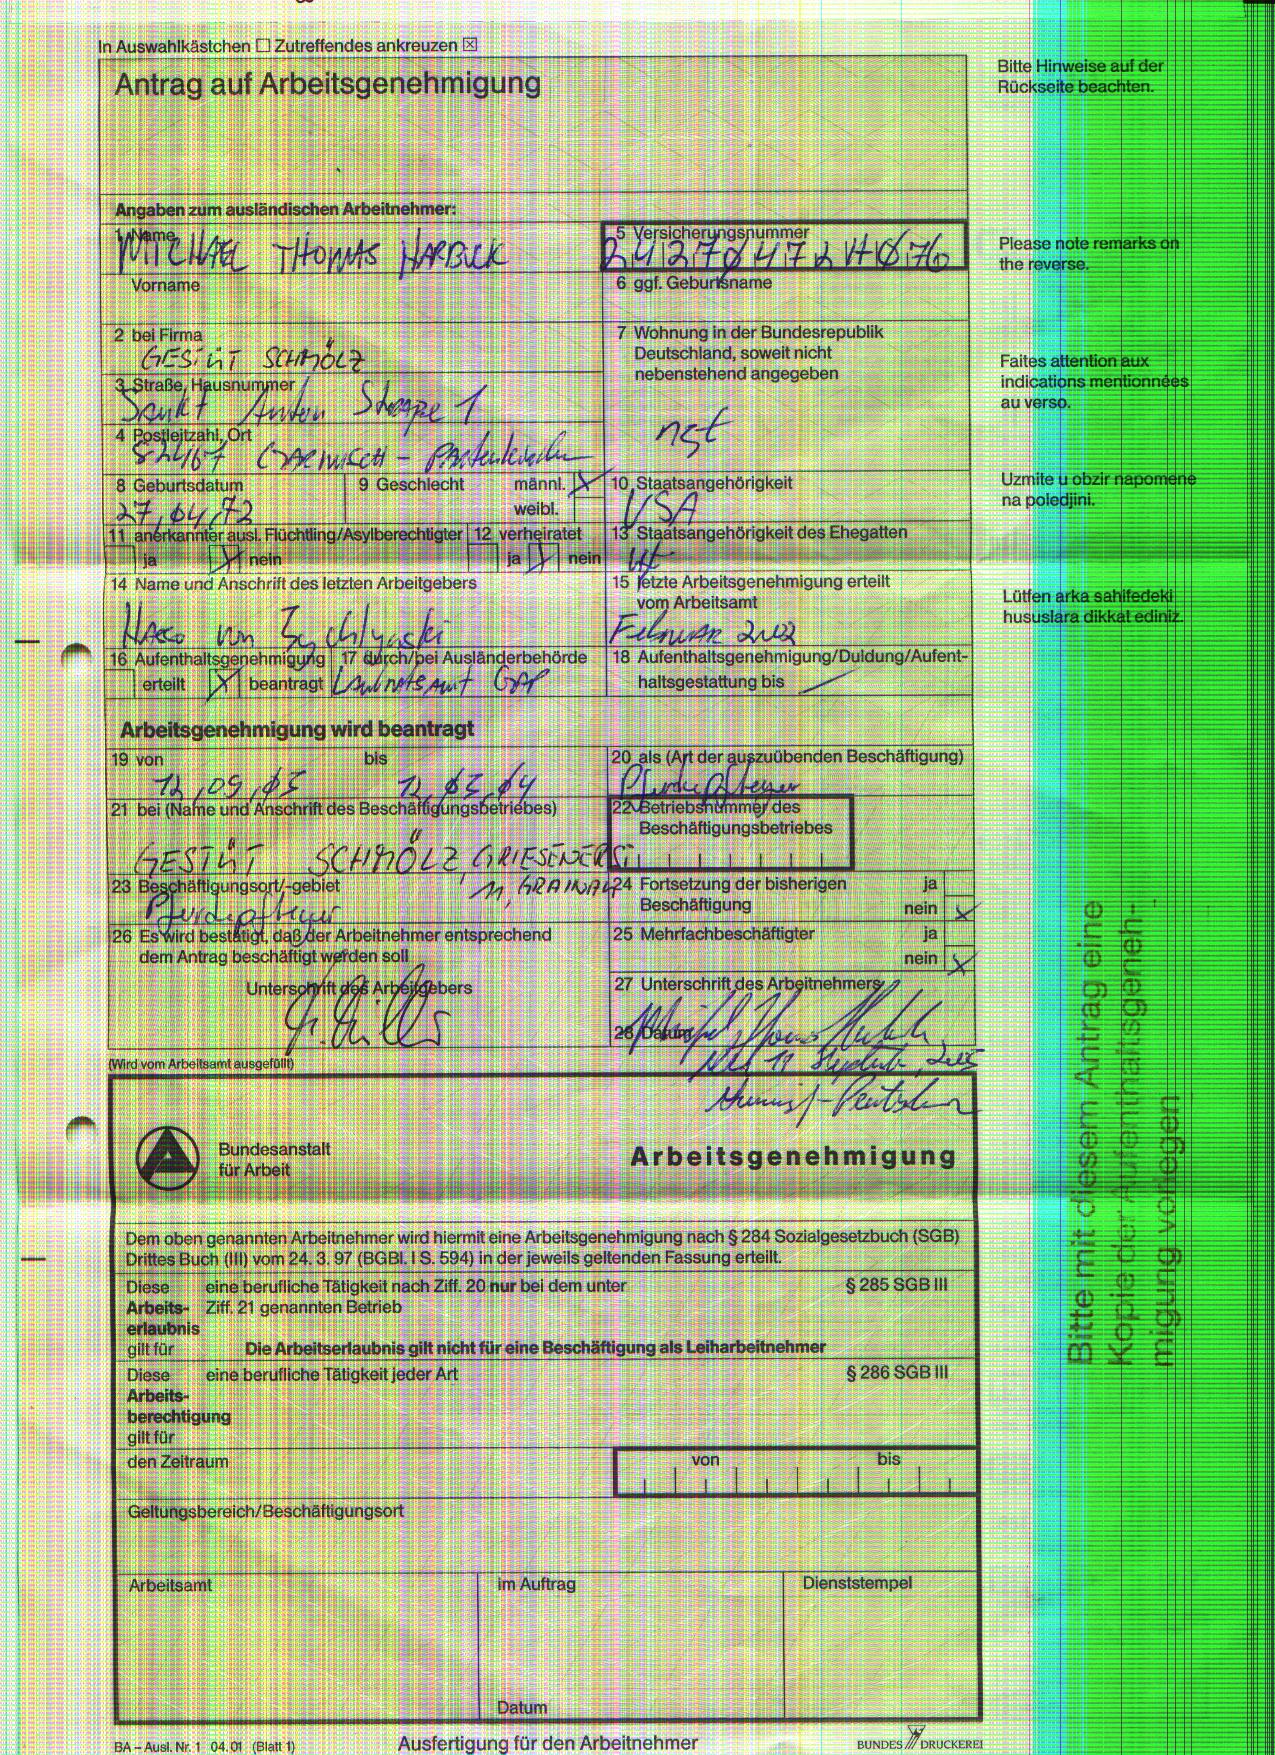 In Auswahlkästchen ☐ Zutreffendes ankreuzen ☒
Antrag auf Arbeitsgenehmigung
Bitte Hinweise auf der
Rückseite beachten.
Angaben zum ausländischen Arbeitnehmer:
1 Name
MICHAEL THOMAS HARBUCK
Vorname
5 Versicherungsnummer
24270472H076
6 ggf. Geburtsname
Please note remarks on
the reverse.
2 bei Firma
GESTÜT SCHMÖLZ
3 Straße, Hausnummer
Sankt Anton Straße 1
4 Postleitzahl, Ort
82467 GARMISCH - Partenkirchen
7 Wohnung in der Bundesrepublik
Deutschland, soweit nicht
nebenstehend angegeben
Faites attention aux
indications mentionnées
au verso.
8 Geburtsdatum
27,04,72
9 Geschlecht
männl. X
weibl.
10 Staatsangehörigkeit
USA
Uzmite u obzir napomene
na poledjini.
11 anerkannter ausl. Flüchtling/Asylberechtigter
ja X nein
12 verheiratet
ja X nein
13 Staatsangehörigkeit des Ehegatten
14 Name und Anschrift des letzten Arbeitgebers
von
15 letzte Arbeitsgenehmigung erteilt
vom Arbeitsamt
Februar 2002
Lütfen arka sahifedeki
hususlara dikkat ediniz.
16 Aufenthaltsgenehmigung
erteilt X beantragt
17 durch/bei Ausländerbehörde
Landratsamt GAP
18 Aufenthaltsgenehmigung/Duldung/Aufent-
haltsgestattung bis
Arbeitsgenehmigung wird beantragt
19 von bis
12,09,03 12,03,04
20 als (Art der auszuübenden Beschäftigung)
Pferdepfleger
21 bei (Name und Anschrift des Beschäftigungsbetriebes)
GESTÜT SCHMÖLZ,
11, GRAINAU
22 Betriebsnummer des
Beschäftigungsbetriebes
23 Beschäftigungsort/-gebiet
Pferdepfleger
24 Fortsetzung der bisherigen
Beschäftigung
ja
nein X
25 Mehrfachbeschäftigter
ja
nein X
26 Es wird bestätigt, daß der Arbeitnehmer entsprechend
dem Antrag beschäftigt werden soll
Unterschrift des Arbeitgebers
27 Unterschrift des Arbeitnehmers
28 Datum
(Wird vom Arbeitsamt ausgefüllt)
Bundesanstalt
für Arbeit
Arbeitsgenehmigung
Dem oben genannten Arbeitnehmer wird hiermit eine Arbeitsgenehmigung nach § 284 Sozialgesetzbuch (SGB)
Drittes Buch (III) vom 24. 3. 97 (BGBl. I S. 594) in der jeweils geltenden Fassung erteilt.
Diese eine berufliche Tätigkeit nach Ziff. 20 nur bei dem unter § 285 SGB III
Arbeits- Ziff. 21 genannten Betrieb
erlaubnis
gilt für Die Arbeitserlaubnis gilt nicht für eine Beschäftigung als Leiharbeitnehmer
Diese eine berufliche Tätigkeit jeder Art § 286 SGB III
Arbeits-
berechtigung
gilt für
den Zeitraum von bis
Geltungsbereich/Beschäftigungsort
Arbeitsamt im Auftrag Dienststempel
Datum
BA – Ausl. Nr. 1 04.01 (Blatt 1) Ausfertigung für den Arbeitnehmer BUNDESDRUCKEREI
Bitte mit diesem Antrag eine
Kopie der Aufenthaltsgeneh-
migung vorlegen